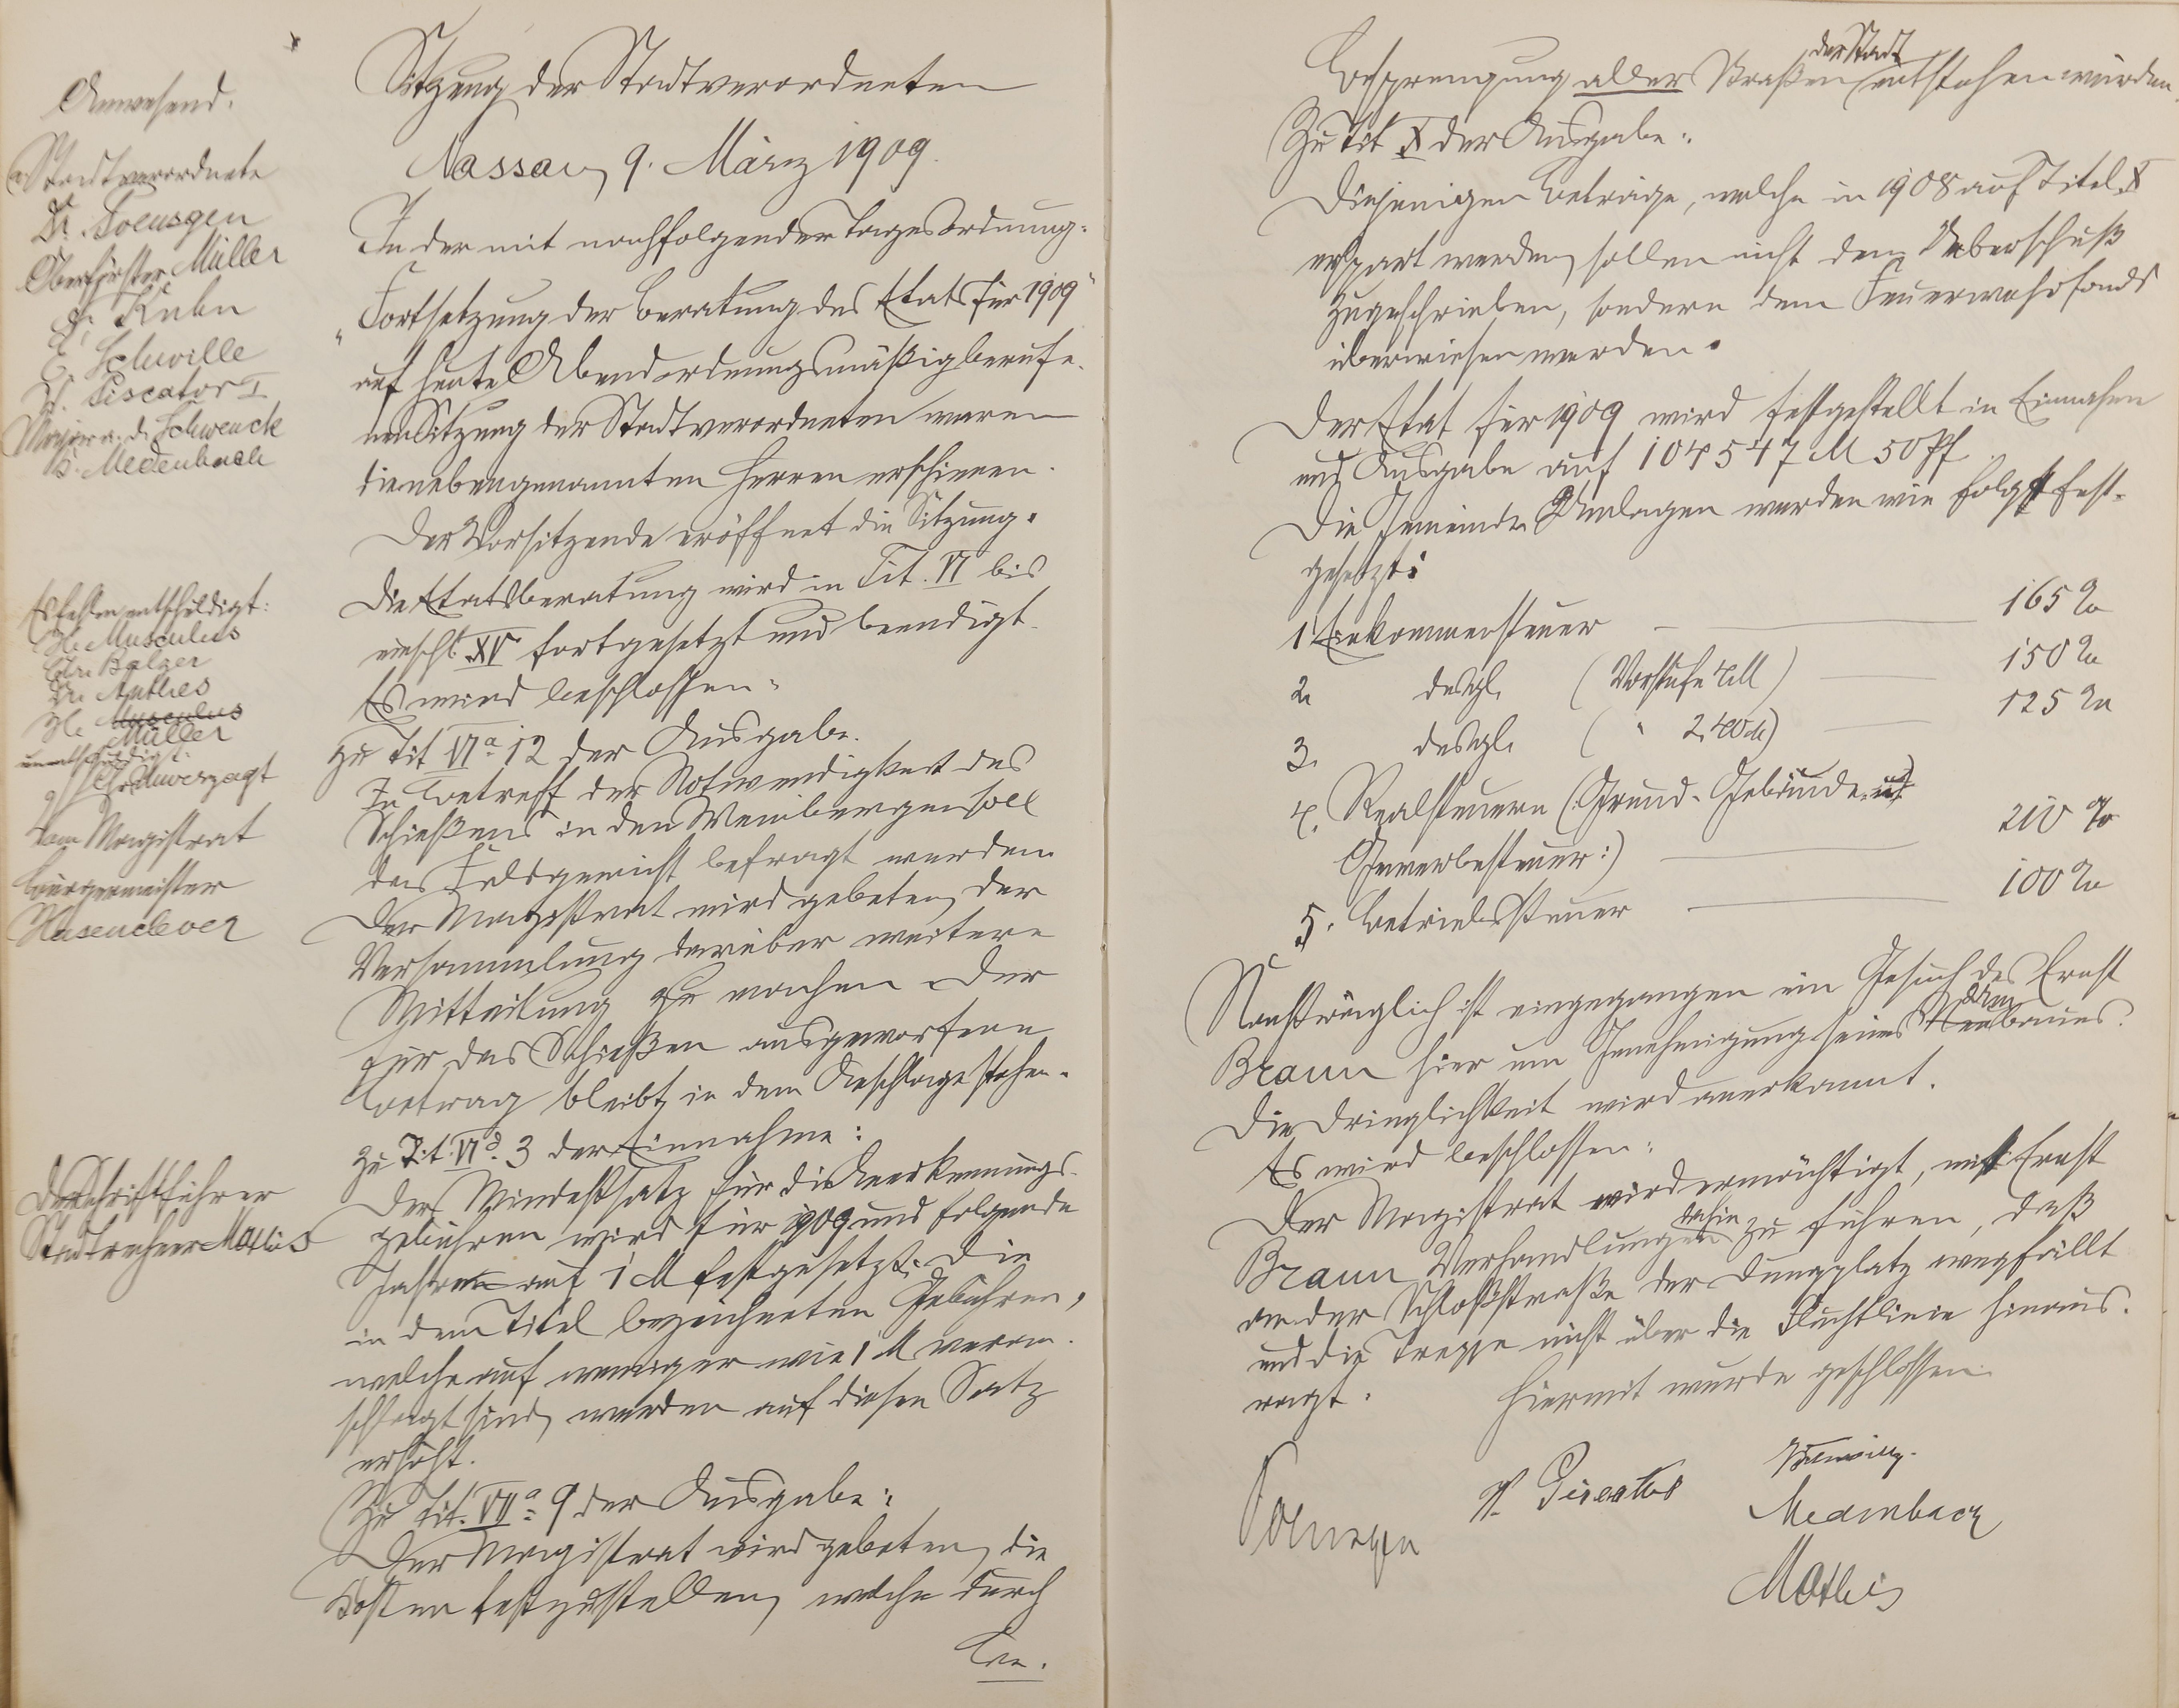 Anwesend.
a Stadtverordnete
Dr. Poensgen
Oberförster Müller
F. Kuhn
E. Schuville
W. Piscator I
Major a. D. Schwenck
B. Medenbach
Es fehlen entschuldigt:
H. Musculus
Chr. Balzer
Dr. Anthes
H. Musculus
Müller
unentschuldigt:
Chr. Unverzagt
Vom Magistrat
Bürgermeister
Hasenclever
Der Schriftführer
Stadtrechner Mathis
Sitzung der Stadtverordneten
Nassau, 9. März 1909.
In der mit nachfolgender Tagesordnung:
"Fortsetzung der Beratung des Etats für 1909"
auf heute Abend ordnungsmäßig berufe-
nen Sitzung der Stadtverordneten waren
die nebengenannten Herren erschienen.
Der Vorsitzende eröffnet die Sitzung.
Die Etatsberatung wird in Tit. VI bis
einschl. XV fortgesetzt und beendigt.
Es wird beschlossen:
zu Tit VI a 12 der Ausgabe.
In Betreff der Notwendigkeit des
Schießens in den Weinbergen soll
das Feldgericht befragt werden.
Der Magistrat wird gebeten, der
Versammlung darüber weitere
Mitteilung zu machen. Der
für das Schießen ausgeworfene
Betrag bleibt in dem Anschlage stehen.
zu Tit. VI d. 3 der Einnahme:
Der Mindestsatz für die Anerkennungs-
gebühren wird für 1909 und folgende
Jahre auf 1 M festgesetzt. Die
in dem Titel bezeichneten Gebühren,
welche auf weniger wie 1 M veran-
schlagt sind, werden auf diesen Satz
erhöht.
Zu Tit. VII a 9 der Ausgabe:
Der Magistrat wird gebeten, die
Kosten festzustellen, welche durch
Be-
Besprengung aller Straßen der Stadt entstehen würden.
Zu Tit X der Ausgabe:
Diejenigen Beträge, welche in 1908 auf Titel X
erspart werden, sollen nicht dem Ueberschuß
zugeschrieben, sondern dem Feuerwehrfonds
überwiesen werden.
Der Etat für 1909 wird festgestellt in Einnahmen
und Ausgabe auf 104547 M 50 Pf.
Die Gemeinde-Umlagen werden wie folgt fest-
gesetzt:
1 Einkommensteuer — 165 %
2. desgl. (Vorstufe 4 M) — 150 %
3. desgl. ( " 2,40 M) — 125 %
4. Realsteuern (:Grund- Gebäude- u.
Gewerbesteuer:) — 210 %
5. Betriebssteuer — 100 %
Nachträglich ist eingegangen ein Gesuch des Ernst
Braun hier um Genehmigung seines Neubaues.
Die Dringlichkeit wird anerkannt.
Es wird beschlossen:
Der Magistrat wird ermächtigt, mit Ernst
Braun Verhandlungen dahin zu führen, daß
an der Schloßstraße der Dungplatz wegfällt
und die Treppe nicht über die Fluchtlinie hinaus-
ragt.
Hiermit wurde geschlossen.
Poensgen
W. Piscator
Medenbach
Mathis